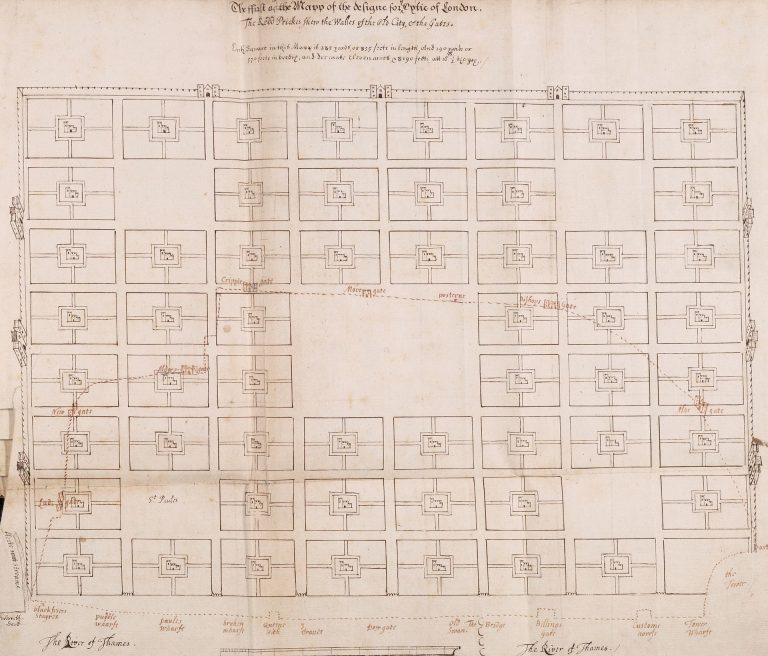 The ffirst of the Mapp of the designe for Cytie of London.
The Redd Prickes shew the Walles of the Old City, & the Gates.
Each Square in this Mapp is 285 yards or 855 feete in length, And 190 yards or
570 feete in bredth, and
Cripple gate
Moore gate
posterne
Bishops gate
Alders gate
New gate
Ald gate
Lud gate
St Pauls
the Tower
blackfriers stayres
puddle wharfe
paules wharfe
broken wharfe
Queene hith
3 Cranes
Dowgate
Old Swan
The Bridge
Billings gate
Custome house
Tower Wharfe
The River of Thames.
The River of Thames.